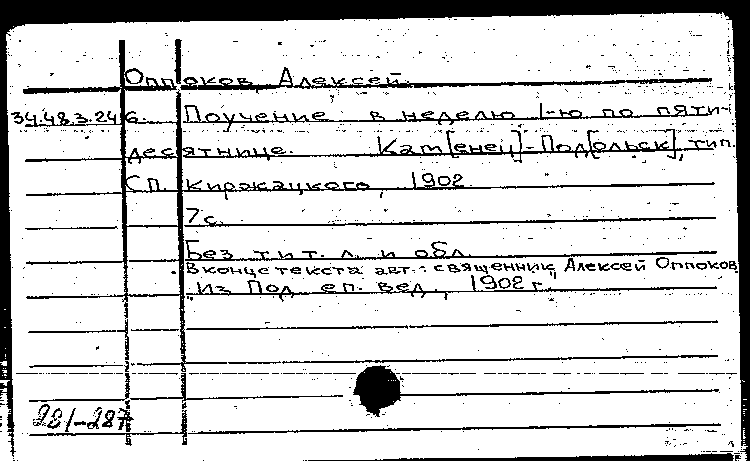 Оппоков, Алексей.
34.48.3.246. Поучение в неделю 1-ю по пяти-
десятнице. Кам[енец]-Под[ольск], тип.
С.П. Киржацкого, 1902
7 с.
Без тит. л. и обл.
В конце текста авт.: священник Алексей Оппоков
"Из Под. еп. вед.", 1902 г.
281-287